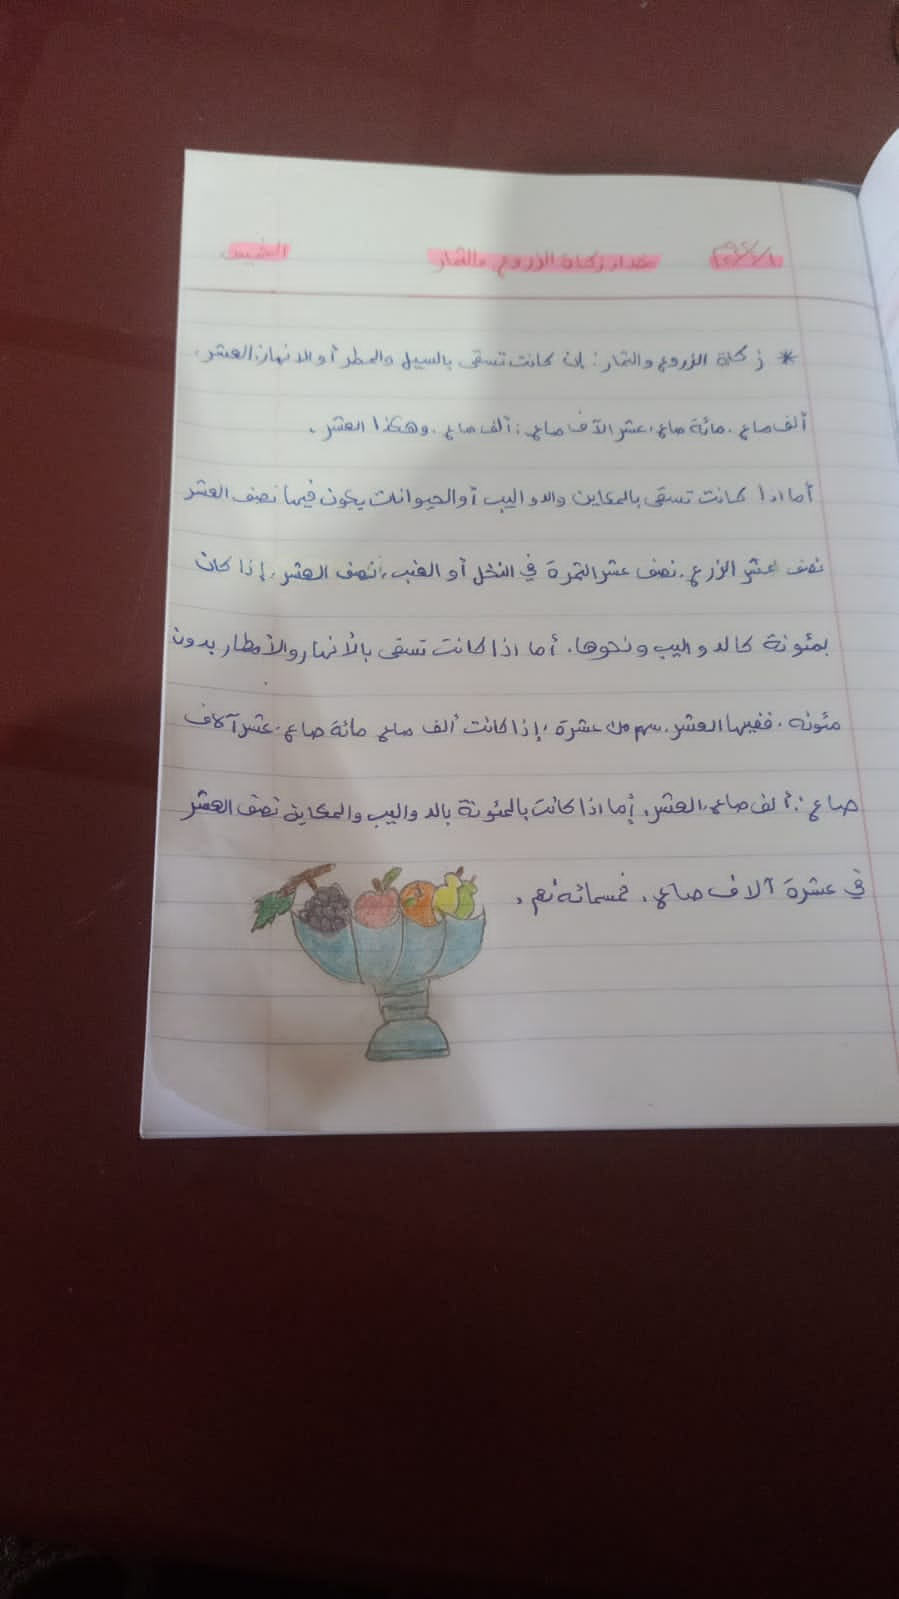 مقدار زكاة الزروع والثمار الخميس
* زكاة الزروع والثمار: إن كانت تسقى بالسيل والمطر أو الانهار: العشر،
ألف صاع. مائة صاع، عشر الآف صاع: ألف صاع. وهكذا العشر.
أما اذا كانت تسقى بالمكاين والدواليب أو الحيوانات يكون فيها نصف العشر
نصف عشر الزرع. نصف عشر الثمرة في النخل أو العنب، نصف العشر، إذا كان
بمئونة كالدواليب ونحوها. أما اذا كانت تسقى بالأنهار والأمطار بدون
مئونه. ففيها العشر. سهم من عشرة، إذا كانت ألف صاع مائة صاع. عشر آلاف
صاع: ألف صاع، العشر. إما اذا كانت بالمئونة بالدواليب والمكاين نصف العشر
في عشرة آلاف صاع. خمسمائة نعم.